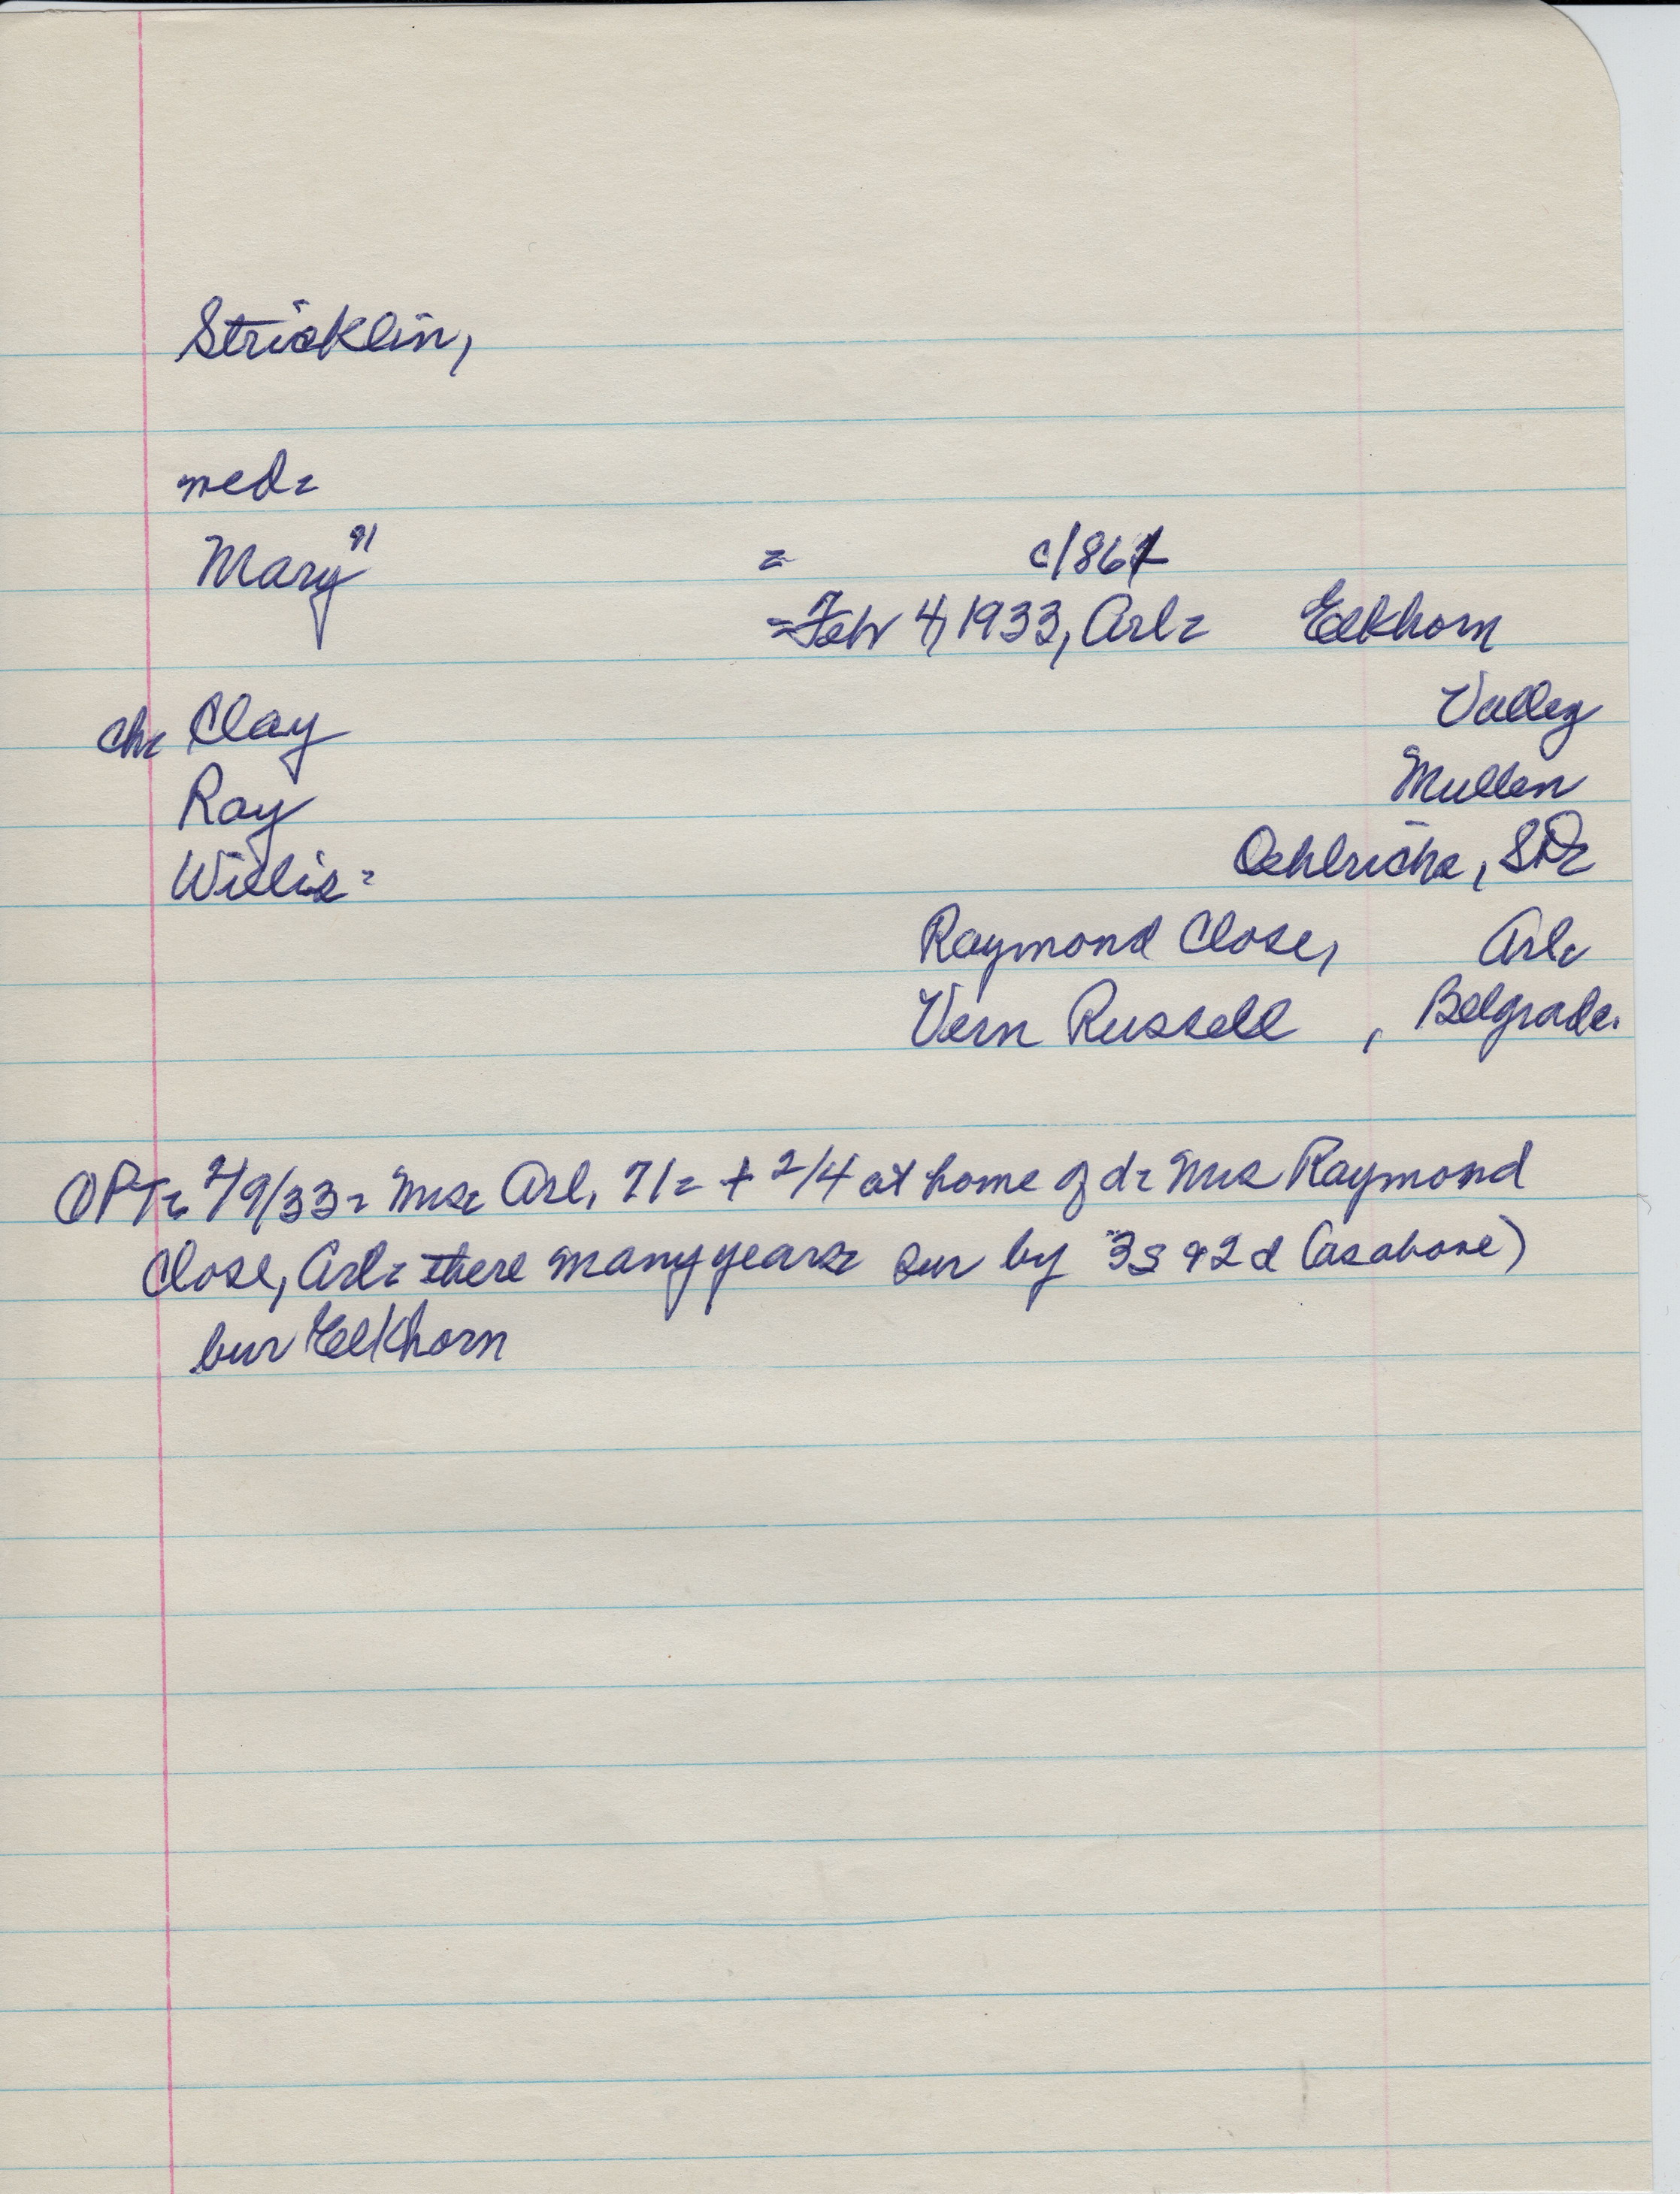 Stricklin,
med=
Mary " = c/861
=Feb 4, 1933, Arl= Elkhorn
ch= Clay Valley
Ray Mullen
Willis= Oehlrichs, SD=
Raymond Close, Arl=
Vern Russell , Belgrade.
OPT= 2/9/33= Mrs= Arl, 71= + 2/4 at home of d= Mrs Raymond
Close, Arl= there many years= sur by 3s & 2d (as above)
bur Elkhorn